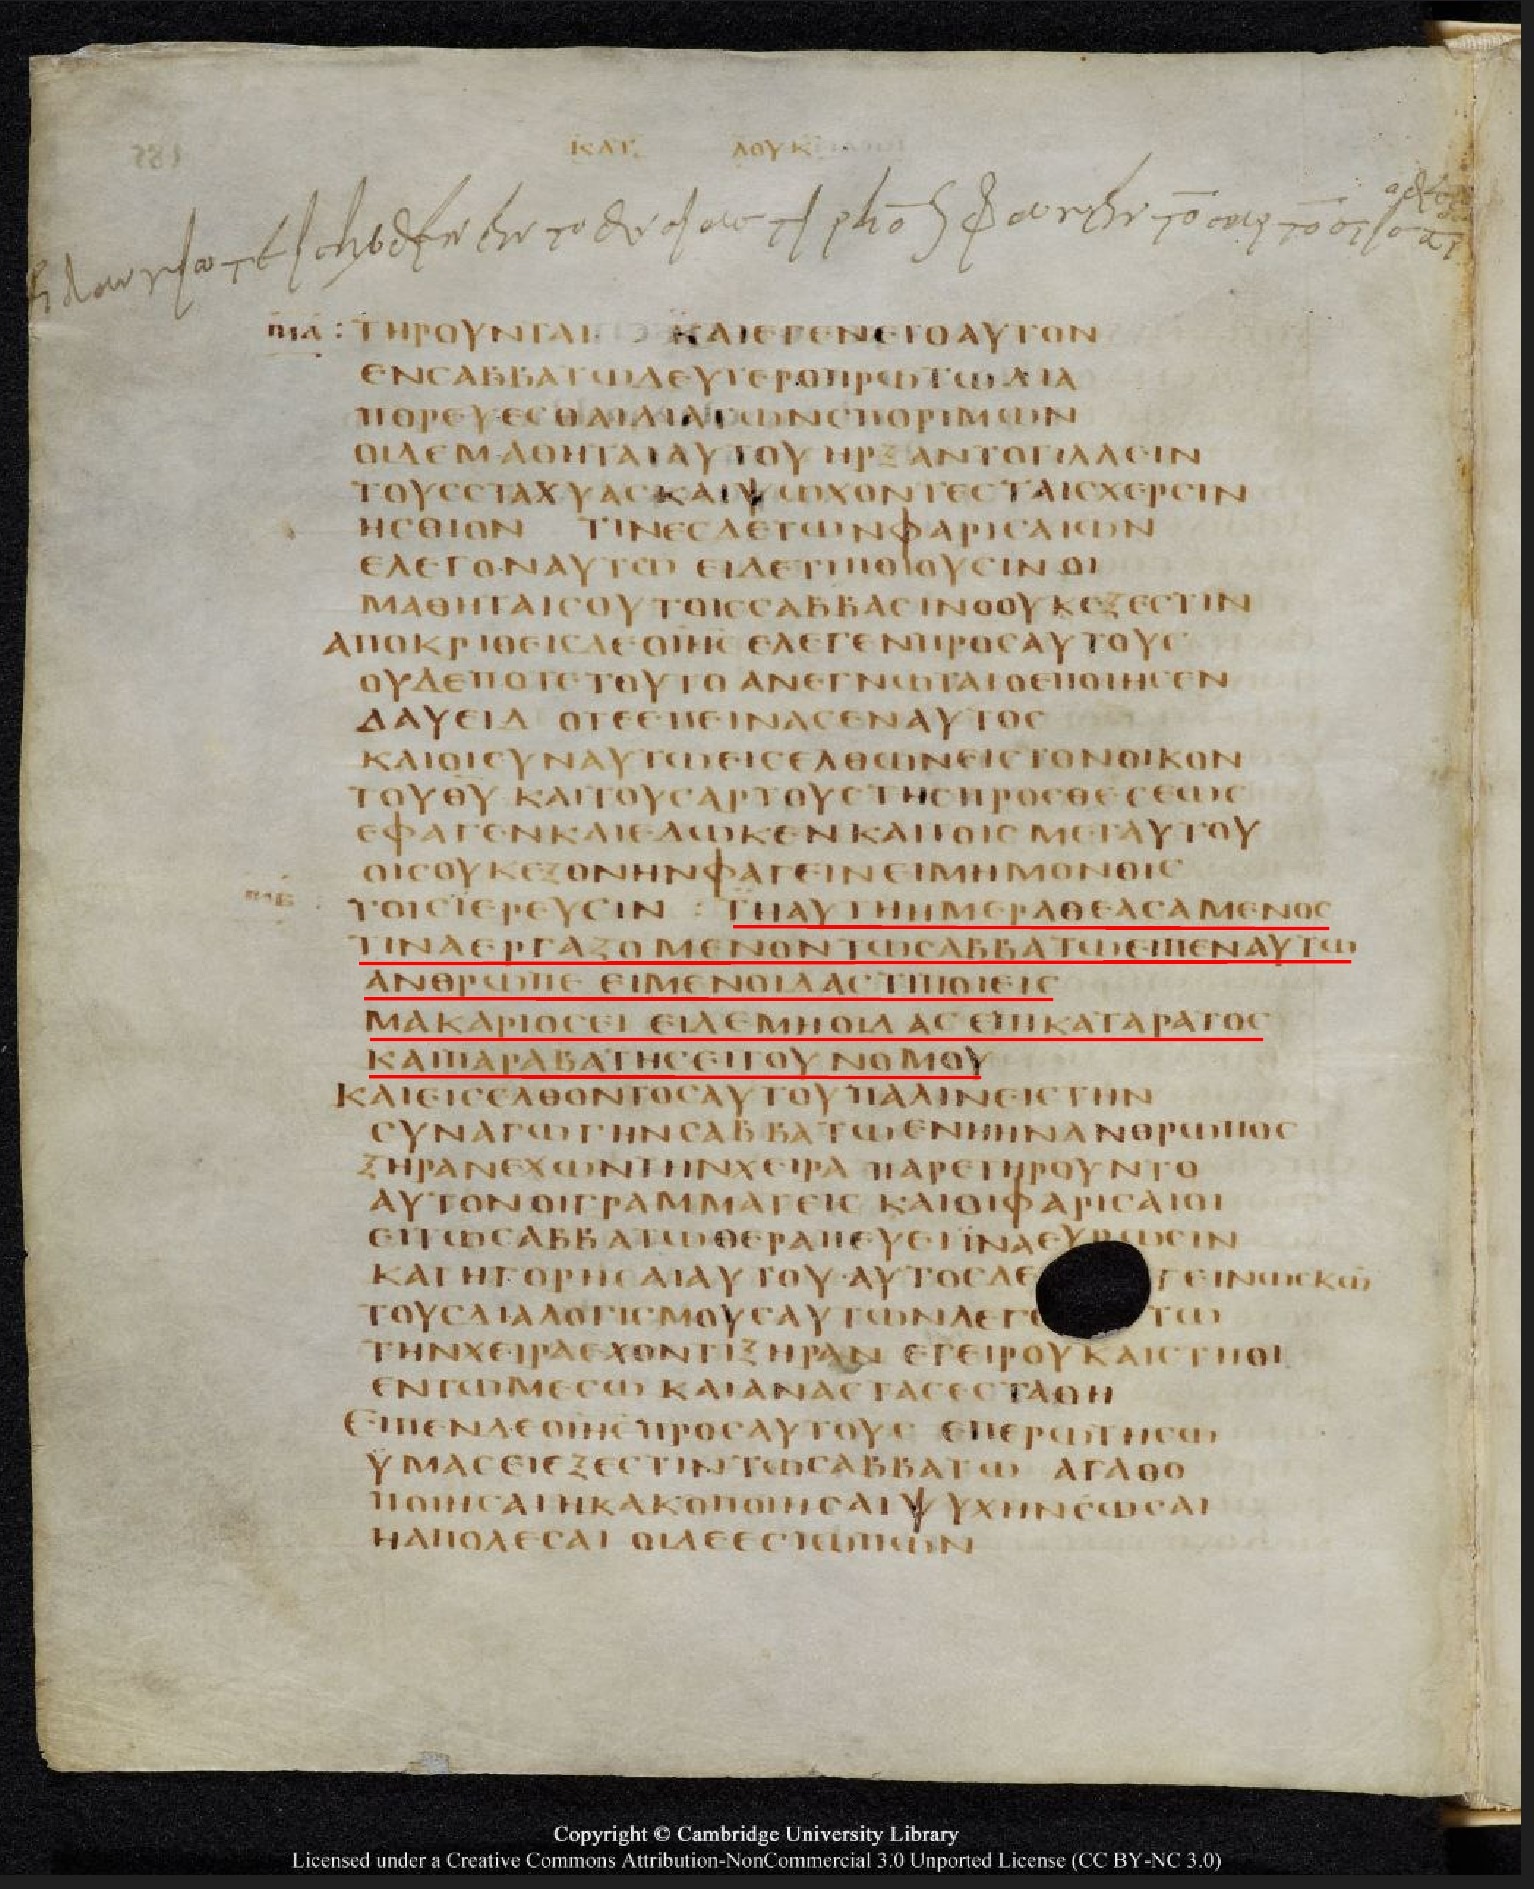 ΚΑΤ ΛΟΥΚ
ΤΗΡΟΥΝΤΑΙ ΚΑΙΕΓΕΝΕΤΟΑΥΤΟΝ
ΕΝΣΑΒΒΑΤΩΔΕΥΤΕΡΟΠΡΩΤΩΔΙΑ
ΠΟΡΕΥΕΣΘΑΙΔΙΑΤΩΝΣΠΟΡΙΜΩΝ
ΟΙΔΕΜΑΘΗΤΑΙΑΥΤΟΥ ΗΡΞΑΝΤΟΤΙΛΛΕΙΝ
ΤΟΥΣΣΤΑΧΥΑΣΚΑΙΨΩΧΟΝΤΕΣΤΑΙΣΧΕΡΣΙΝ
ΗΣΘΙΟΝ ΤΙΝΕΣΔΕΤΩΝΦΑΡΙΣΑΙΩΝ
ΕΛΕΓΟΝΑΥΤΩ ΕΙΔΕΤΙΠΟΙΟΥΣΙΝΟΙ
ΜΑΘΗΤΑΙΣΟΥΤΟΙΣΣΑΒΒΑΣΙΝΟΟΥΚΕΞΕΣΤΙΝ
ΑΠΟΚΡΙΘΕΙΣΔΕΟΙΗΣ ΕΛΕΓΕΝΠΡΟΣΑΥΤΟΥΣ
ΟΥΔΕΠΟΤΕΤΟΥΤΟ ΑΝΕΓΝΩΤΑΙΟΕΠΟΙΗΣΕΝ
ΔΑΥΕΙΔ ΟΤΕΕΠΕΙΝΑΣΕΝΑΥΤΟΣ
ΚΑΙΟΙΣΥΝΑΥΤΩΕΙΣΕΛΘΩΝΕΙΣΤΟΝΟΙΚΟΝ
ΤΟΥΘΥ ΚΑΙΤΟΥΣΑΡΤΟΥΣΤΗΣΠΡΟΣΘΕΣΕΩΣ
ΕΦΑΓΕΝΚΑΙΕΔΩΚΕΝΚΑΙΤΟΙΣ ΜΕΤΑΥΤΟΥ
ΟΙΣΟΥΚΕΞΟΝΗΝΦΑΓΕΙΝΕΙΜΗΜΟΝΟΙΣ
ΤΟΙΣΪΕΡΕΥΣΙΝ : ΤΗΑΥΤΗΗΜΕΡΑΘΕΑΣΑΜΕΝΟΣ
ΤΙΝΑΕΡΓΑΖΟΜΕΝΟΝΤΩΣΑΒΒΑΤΩΕΙΠΕΝΑΥΤΩ
ΑΝΘΡΩΠΕ ΕΙΜΕΝΟΙΔΑΣΤΙΠΟΙΕΙΣ
ΜΑΚΑΡΙΟΣΕΙ ΕΙΔΕΜΗΟΙΔΑΣ ΕΠΙΚΑΤΑΡΑΤΟΣ
ΚΑΙΠΑΡΑΒΑΤΗΣΕΙΤΟΥΝΟΜΟΥ
ΚΑΙΕΙΣΕΛΘΟΝΤΟΣΑΥΤΟΥΠΑΛΙΝΕΙΣΤΗΝ
ΣΥΝΑΓΩΓΗΝΣΑΒΒΑΤΩΕΝΗΗΝΑΝΘΡΩΠΟΣ
ΞΗΡΑΝΕΧΩΝΤΗΝΧΕΙΡΑ ΠΑΡΕΤΗΡΟΥΝΤΟ
ΑΥΤΟΝΟΙΓΡΑΜΜΑΤΕΙΣ ΚΑΙΟΙΦΑΡΙΣΑΙΟΙ
ΕΙΤΩΣΑΒΒΑΤΩΘΕΡΑΠΕΥΕΙΪΝΑΕΥΡΩΣΙΝ
ΚΑΤΗΓΟΡΗΣΑΙΑΥΤΟΥ ΑΥΤΟΣΔΕ ΓΕΙΝΩΣΚΩ̅
ΤΟΥΣΔΙΑΛΟΓΙΣΜΟΥΣΑΥΤΩΝΛΕΓΕ ΤΩ
ΤΗΝΧΕΙΡΑΕΧΟΝΤΙΞΗΡΑΝ ΕΓΕΙΡΟΥΚΑΙΣΤΗΘΙ
ΕΝΤΩΜΕΣΩ ΚΑΙΑΝΑΣΤΑΣΕΣΤΑΘΗ
ΕΙΠΕΝΔΕΟΙΗΣΠΡΟΣΑΥΤΟΥΣ ΕΠΕΡΩΤΗΣΩ
ΫΜΑΣΕΙΕΞΕΣΤΙΝΤΩΣΑΒΒΑΤΩ ΑΓΑΘΟ
ΠΟΙΗΣΑΙΗΚΑΚΟΠΟΙΗΣΑΙΨΥΧΗΝΣΩΣΑΙ
ΗΑΠΟΛΕΣΑΙ ΟΙΔΕΕΣΙΩΠΩΝ
Copyright © Cambridge University Library
Licensed under a Creative Commons Attribution-NonCommercial 3.0 Unported License (CC BY-NC 3.0)